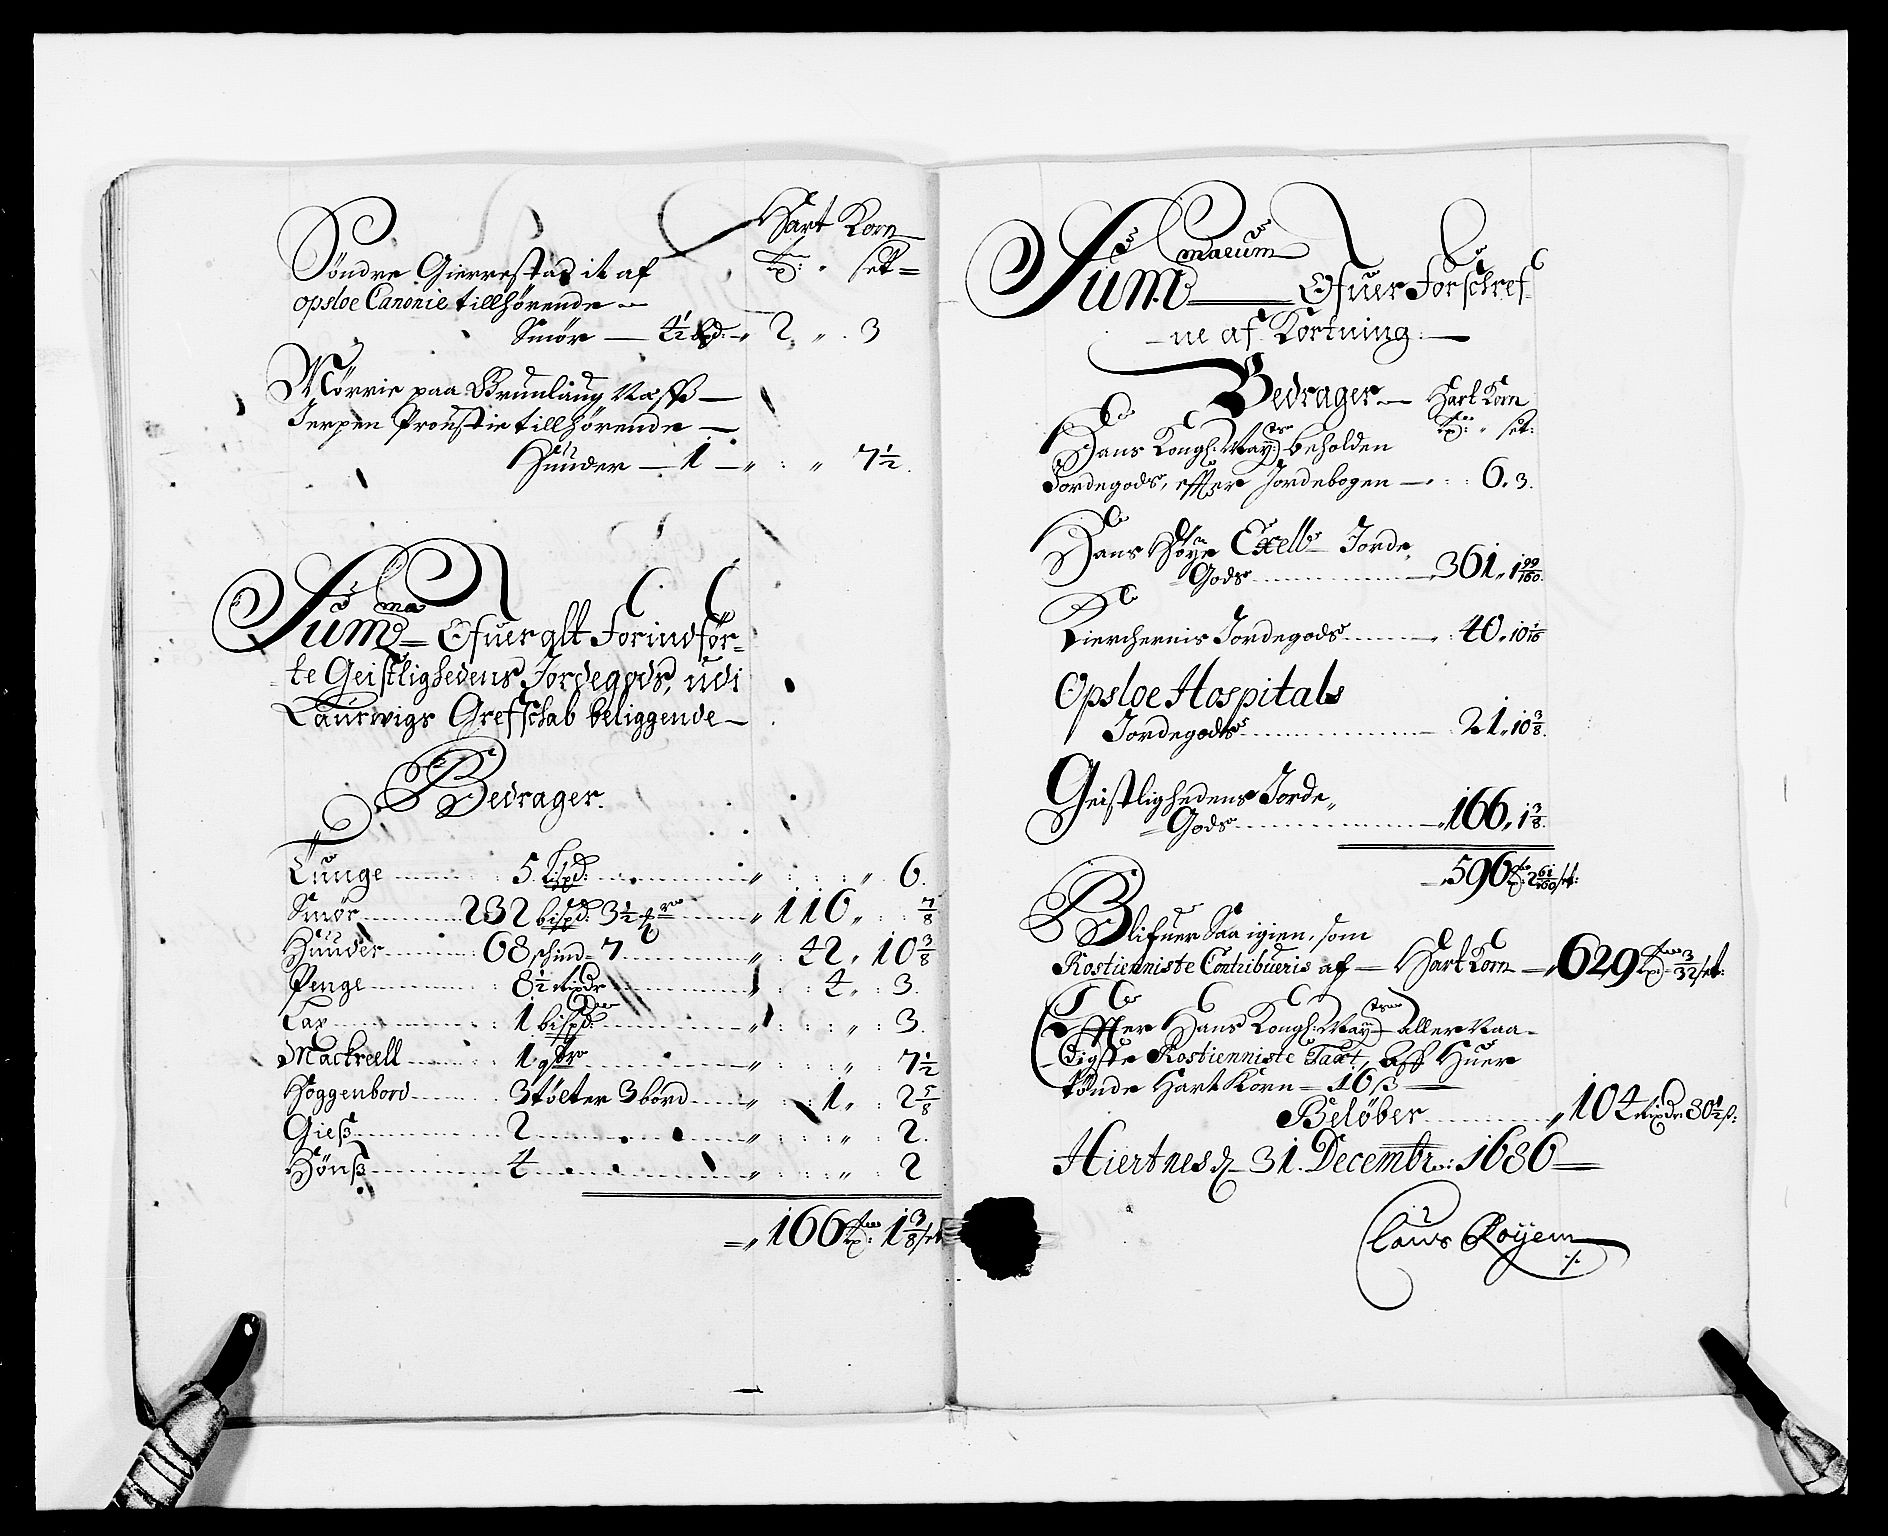 Hart Korn
tr: " set=
Söndre Gierrestad it af
opsloe Canonie tillhörende
Smör — 4½ bpd: — " 2 " 3
Mörrie paa Brunlaug Næss —
Jerpen Proustie tillhörende —
Huuder — 1 — " : " 7½
Summa Ofueralt Forindför-
te Geistlighedens Jordegods, udi
Laurwigs Grefschab beliggende —
Bedrager.
Tunge 5 bispd: " : : " : 6.
Smör 232 bispd: 3½ " 116 " : 7/8
Huuder 68 schind 7 " : 42 " 10 3/8
Penge 8½ rixdr " : : 4 " : 3.
Lax 1 bispd: " : : : " : 3.
Mackrell 1 qtr " : : : " : 7½
Hoggenbord 3 tölter 3 bord " : 1 " : 2 5/8
Giess 2 " : : : " : 2.
Hönss 4 " : : : " : 2
= " 166 tr: 1 3/8 set
Summarum Ofuer Forschref-
ne af Kortning: —
Bedrager — Hart Korn
tr: " set:
Hans Kongl: May: beholden
Jordegods, effter Jordebogen — : : 6. 3.
Hans Höye Excell Jorde
Gods — 361. 1 99/160.
Kierchernis Jordegods : 40. 10 1/16
Opsloe Hospitals
Jordegods 21. 10 3/8.
Geistlighedens Jorde-
Gods — 166. 1 3/8.
— 596 tr: 2 61/160 set:
Blifuer Saa igien, som
Rostienniste Contribueris af — Hart Korn — " 629 tr: 3/32 set:
(Effter Hans Kongl: May: aller Naa-
digste Rostienniste Taxt, Aff Huer
tönde Hart Korn — 16 ß —
Belöber " 104 rixdr 80½ ß:
Hiertnes d 31. Decembr: 1686 —
Claus Röyem